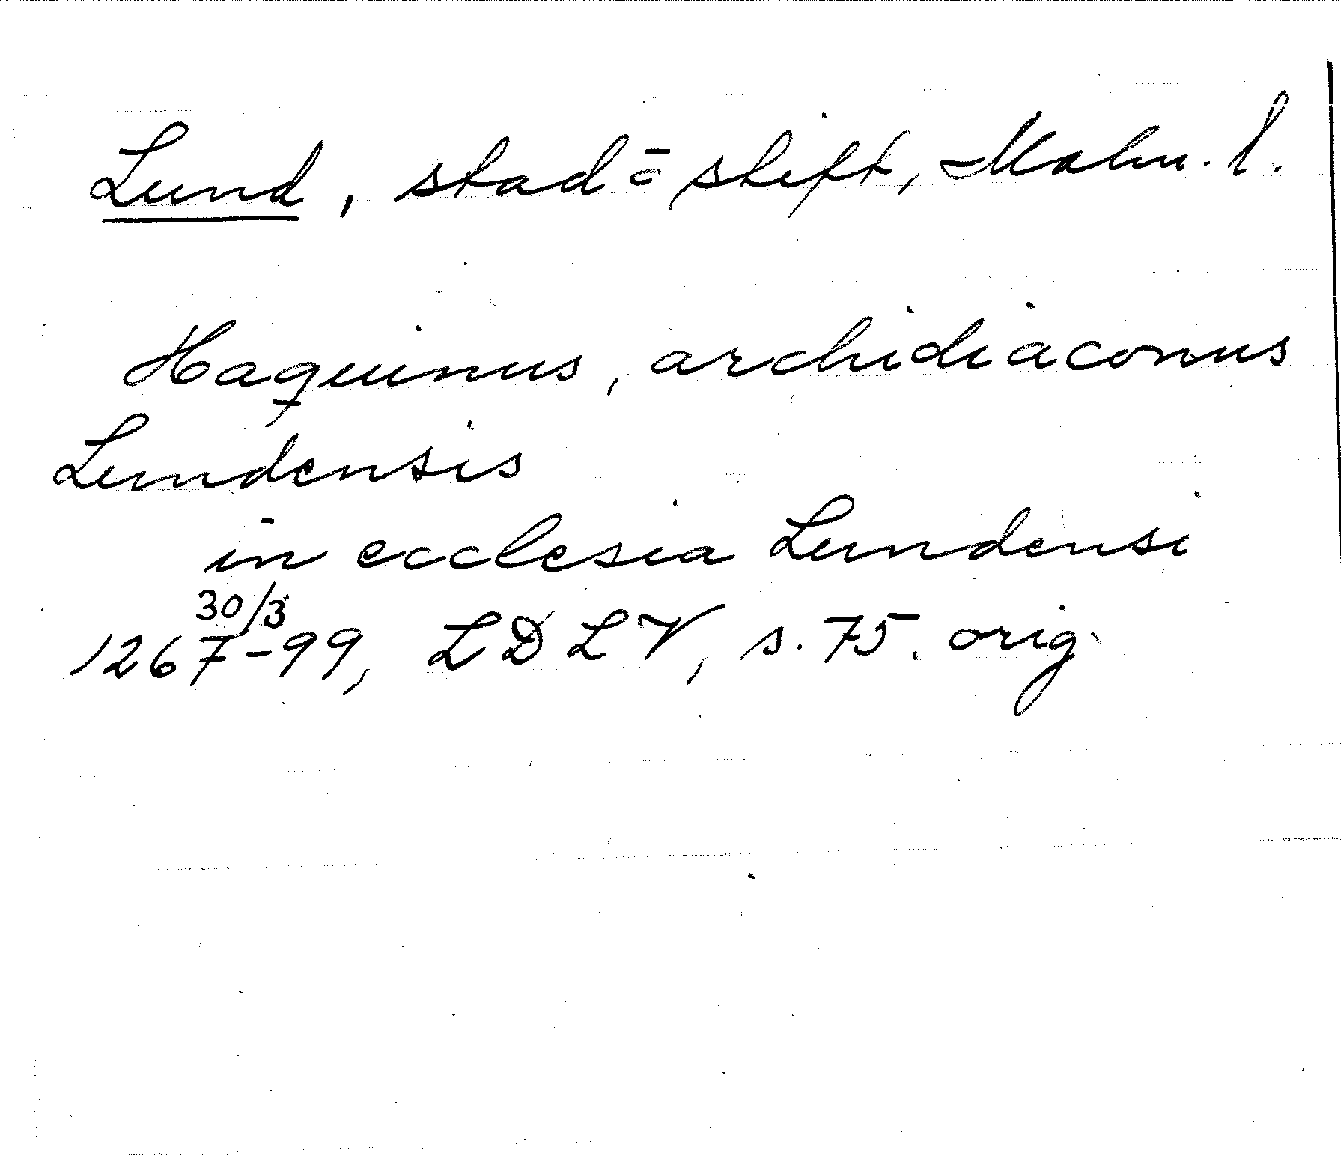 Lund, stad = stift, Malm. l.
Haquinus, archidiaconus
Lundensis
in ecclesia Lundensi
30/3
1267-99, LDLV, s. 75. orig.